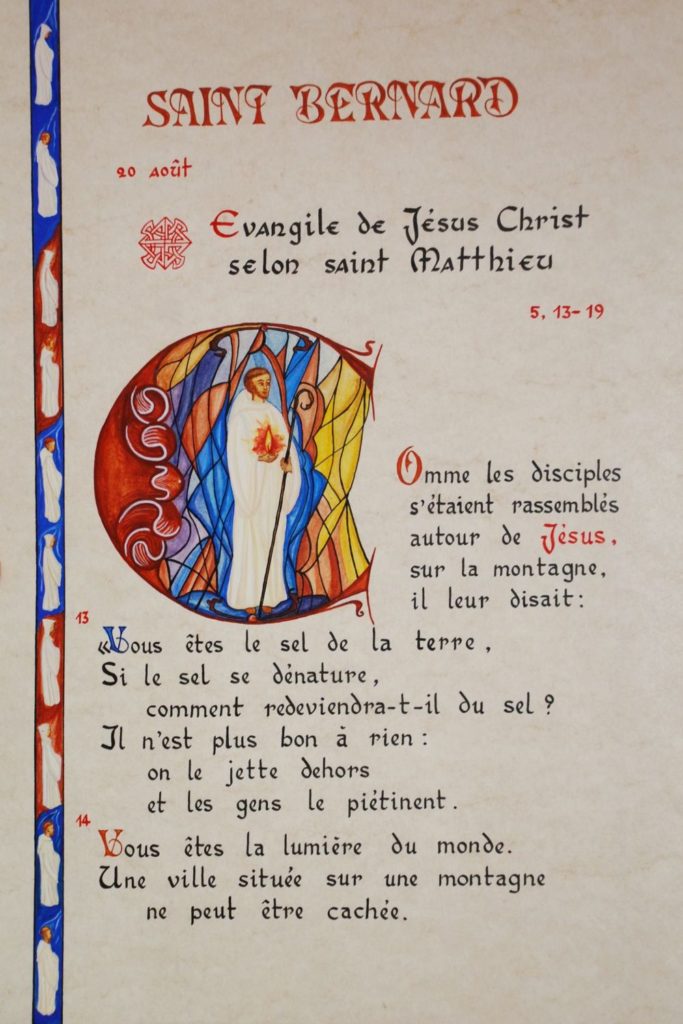 SAINT BERNARD
20 août
Evangile de Jésus Christ
selon saint Matthieu
5, 13-19
Comme les disciples
s'étaient rassemblés
autour de Jésus,
sur la montagne,
il leur disait:
13
«Vous êtes le sel de la terre,
Si le sel se dénature,
comment redeviendra-t-il du sel ?
Il n'est plus bon à rien :
on le jette dehors
et les gens le piétinent.
14
Vous êtes la lumière du monde.
Une ville située sur une montagne
ne peut être cachée.